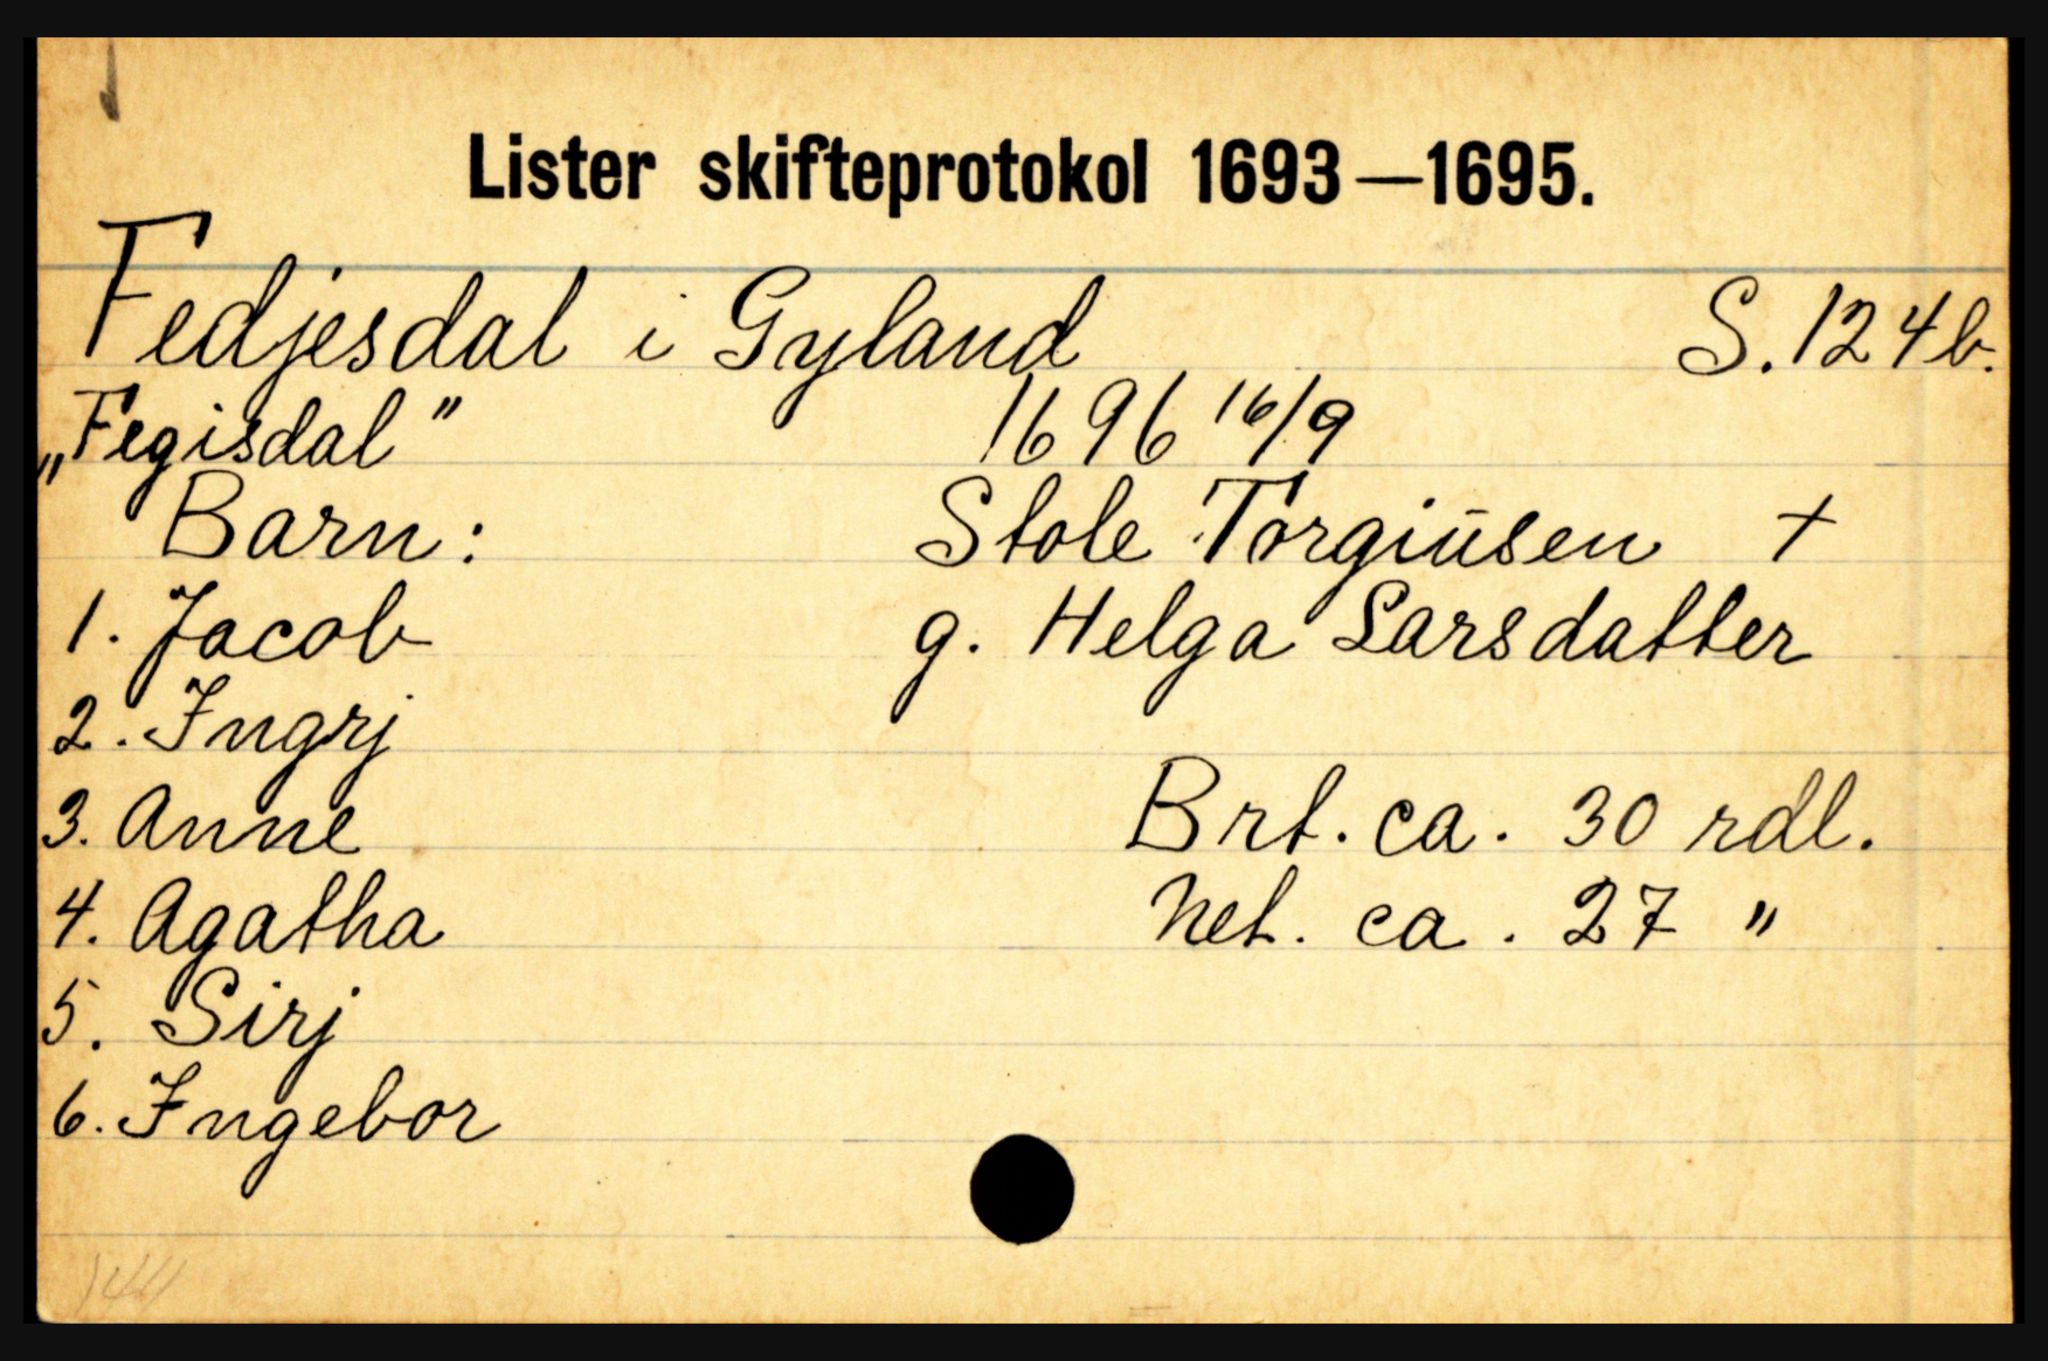 Lister skifteprotokol 1693—1695.
Fedjesdal i Gyland S. 124b.
„Fegisdal" 1696 16/9
Barn: Stole Torgiusen +
1. Jacob g. Helga Larsdatter
2. Ingrj
3. Anne Brt. ca. 30 rdl.
4. Agatha Net. ca. 27 "
5. Sirj
6. Ingebor